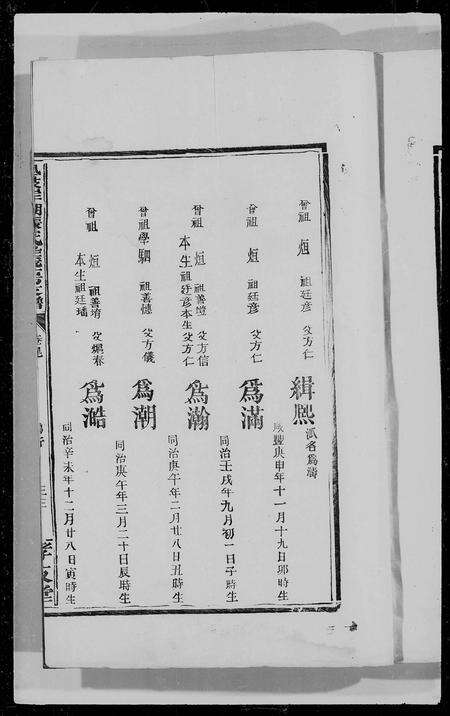 曾祖 烜 祖廷彥 父方仁
緝熙 派名爲濤
咸豐庚申年十一月十九日卯時生
曾祖 烜 祖廷彥 父方仁
爲滿
同治壬戌年九月初一日子時生
曾祖 烜 祖善 父方信
本生祖廷彥本生父方仁
爲瀚
同治庚午年二月廿八日丑時生
曾祖學駟 祖善 父方儀
爲潮
同治庚午年三月二十日辰時生
曾祖 烜 祖善 父 春
本生祖廷璠
爲澔
同治辛未年十二月廿八日寅時生